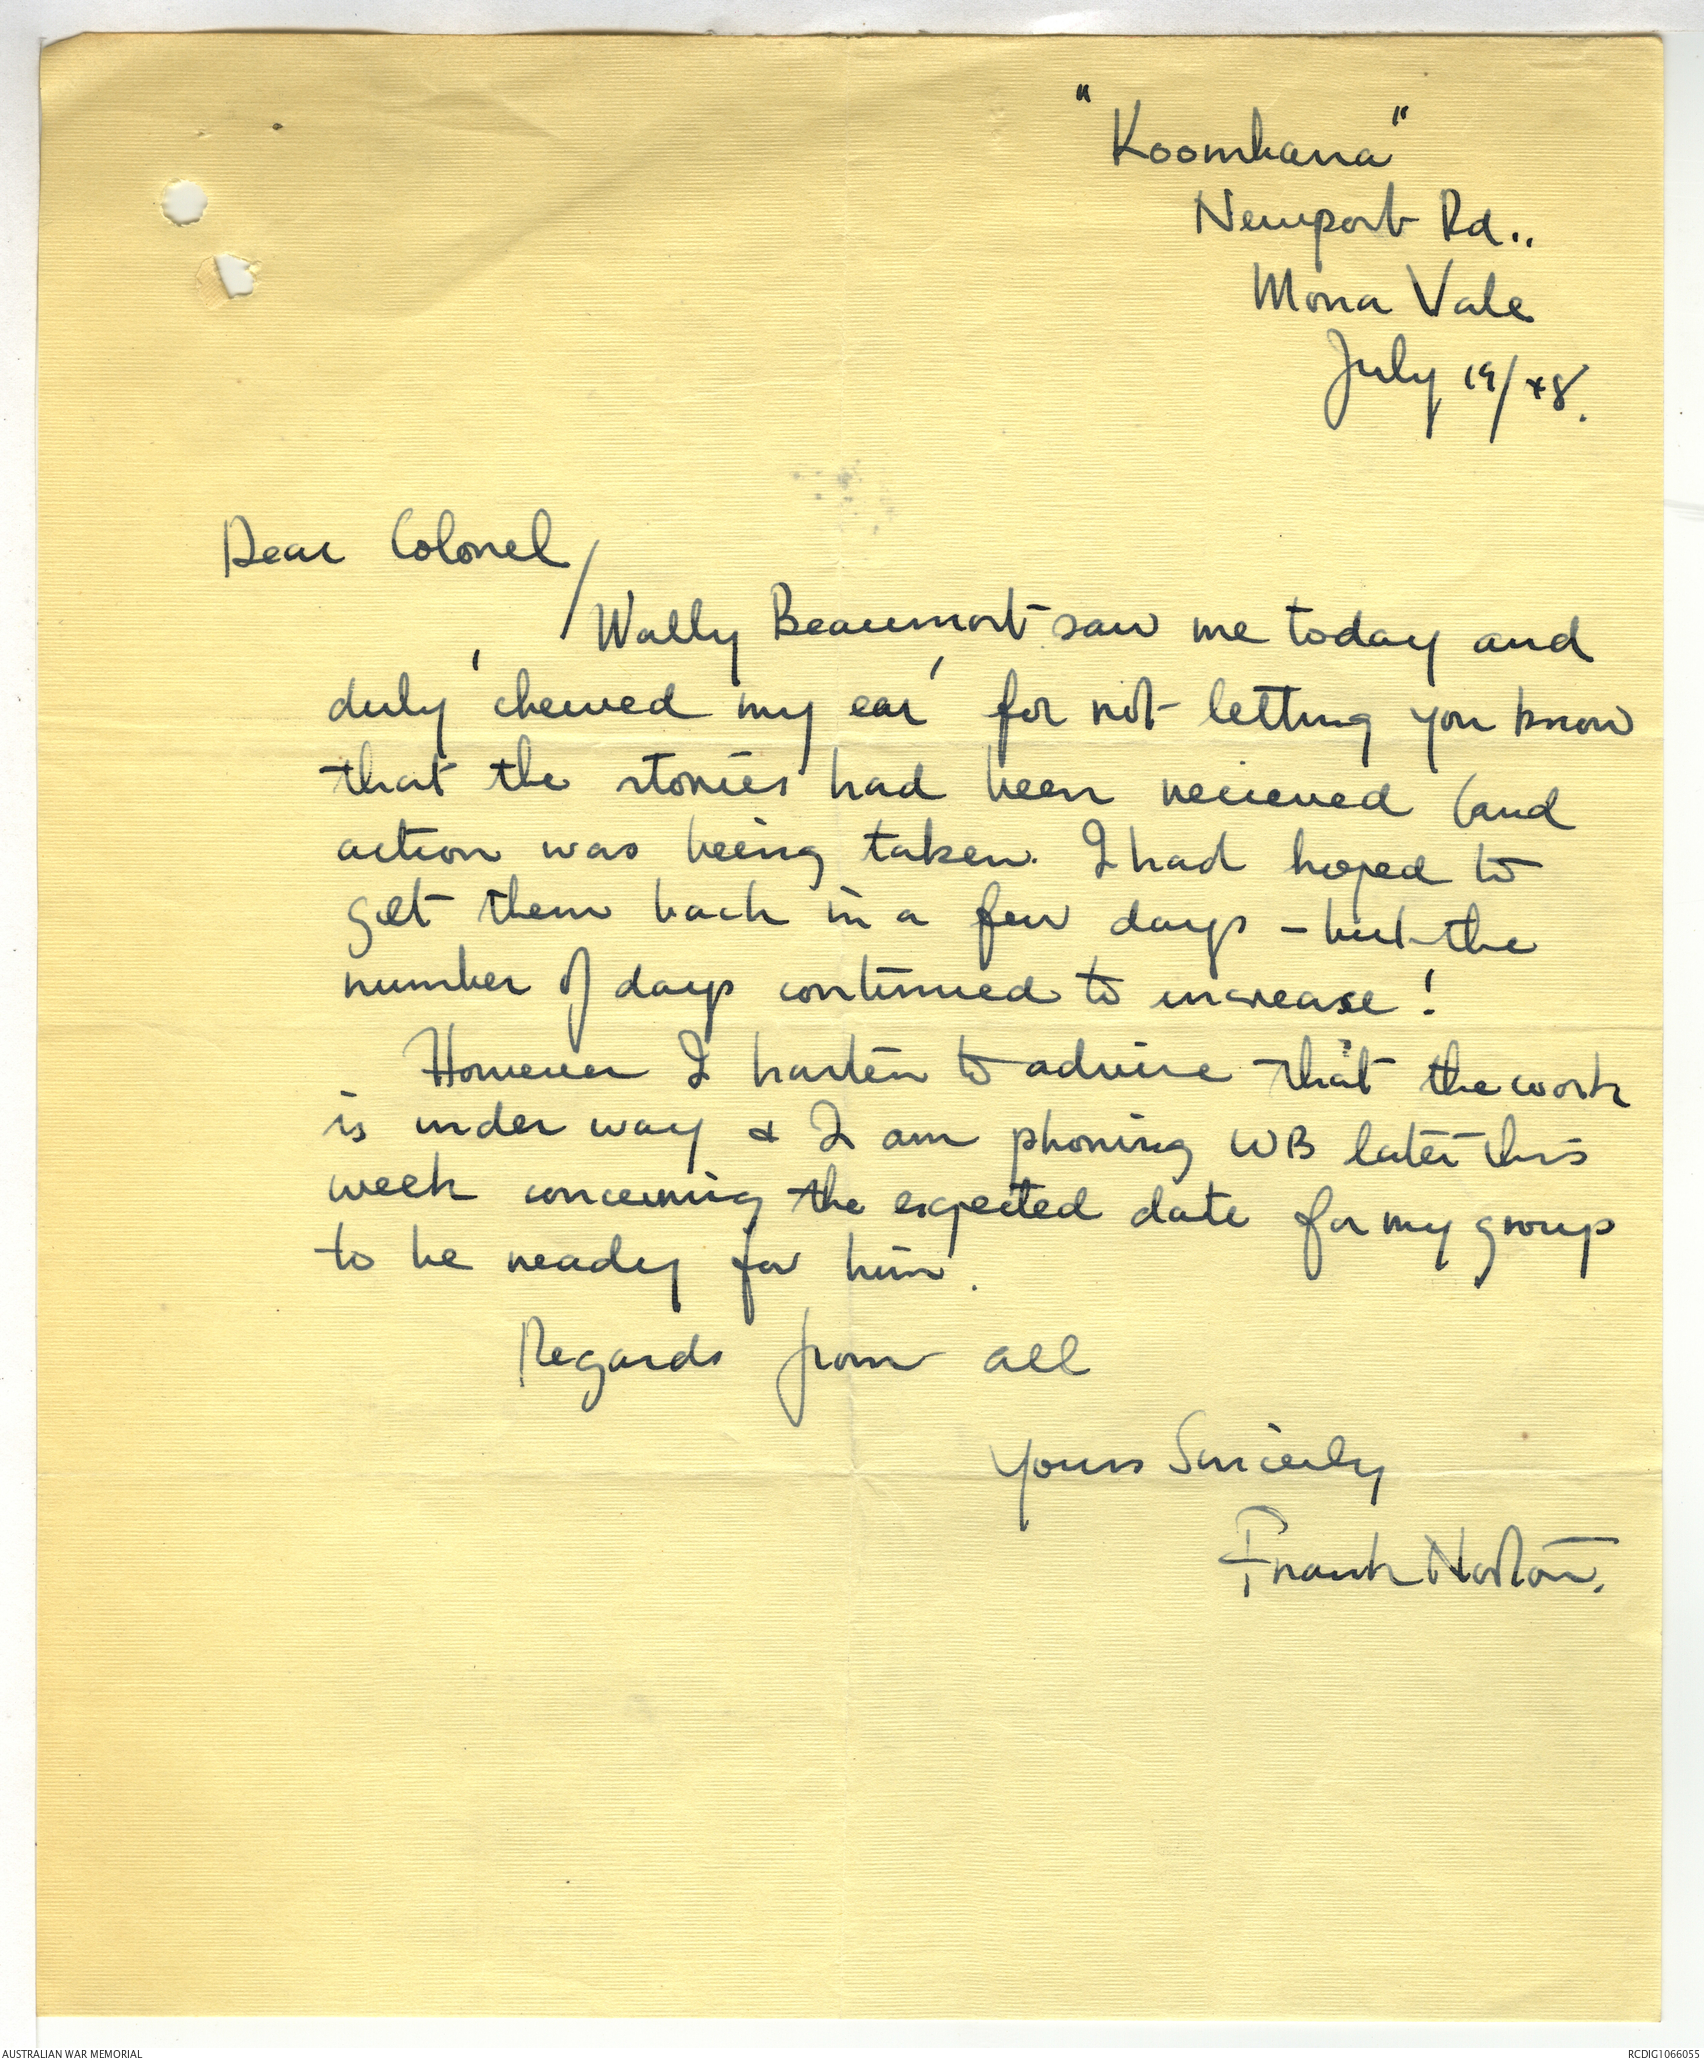 "Koombana"
Newport Rd..
Mona Vale
July 19/48.
Dear Colonel/
Wally Beaumont saw me today and
duly 'chewed my ear' for not letting you know
that the stories had been recieved (and
action was being taken. I had hoped to
get them back in a few days - but the
number of days continued to increase!
However I hasten to advise that the work
is under way & I am phoning WB later this
week concerning the expected date for my group
to be ready for him.
Regards from all
Yours Sincerely
Frank Norton.
AUSTRALIAN WAR MEMORIAL
RCDIG1066055